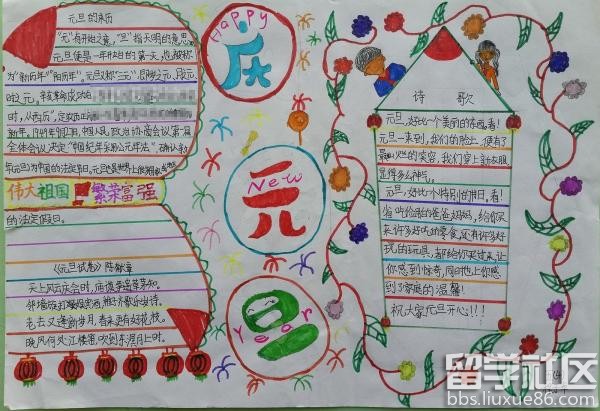 元旦的来历
"元"有开始之意,"旦"指天明的意思
元旦便是一年开始的第一天,也被称
为"新历年""阳历年"。元旦又称"三元",即岁之元、月之元
时之元,辛亥革命成功后
时,从西历",定
新年,1949年9月27日,中国人民政治协商会议第一届
全体会议决定"中国纪年采用公元年法"
元旦
伟大祖国
繁荣富强
的法定假日。
《元旦试笔》陈献章
天上风云庆会时,庙谟争遣草茅知。
邻墙旋打娱宾酒,稚子齐歌乐岁诗。
老去又逢新岁月,春来更有好花枝。
晚风何处江楼笛,吹到东溟月上时。
Happy
庆
New
元
旦
Year
诗 歌
元旦,好比一个美丽的东西,看!
元旦一来到,我们的脸上,便有了
最灿烂的笑容,我们穿上新衣服
显得多么神气。
元旦,好比小特别的节日,看!
省吃俭用的爸爸妈妈,给你买
来许多好吃的零食,还有许多好
玩的玩具,都给你买过来,让
你感到惊奇,同时也让你感
到了家庭的温馨!
祝大家元旦开心!!!
留学社区
bbs.liuxue86.com